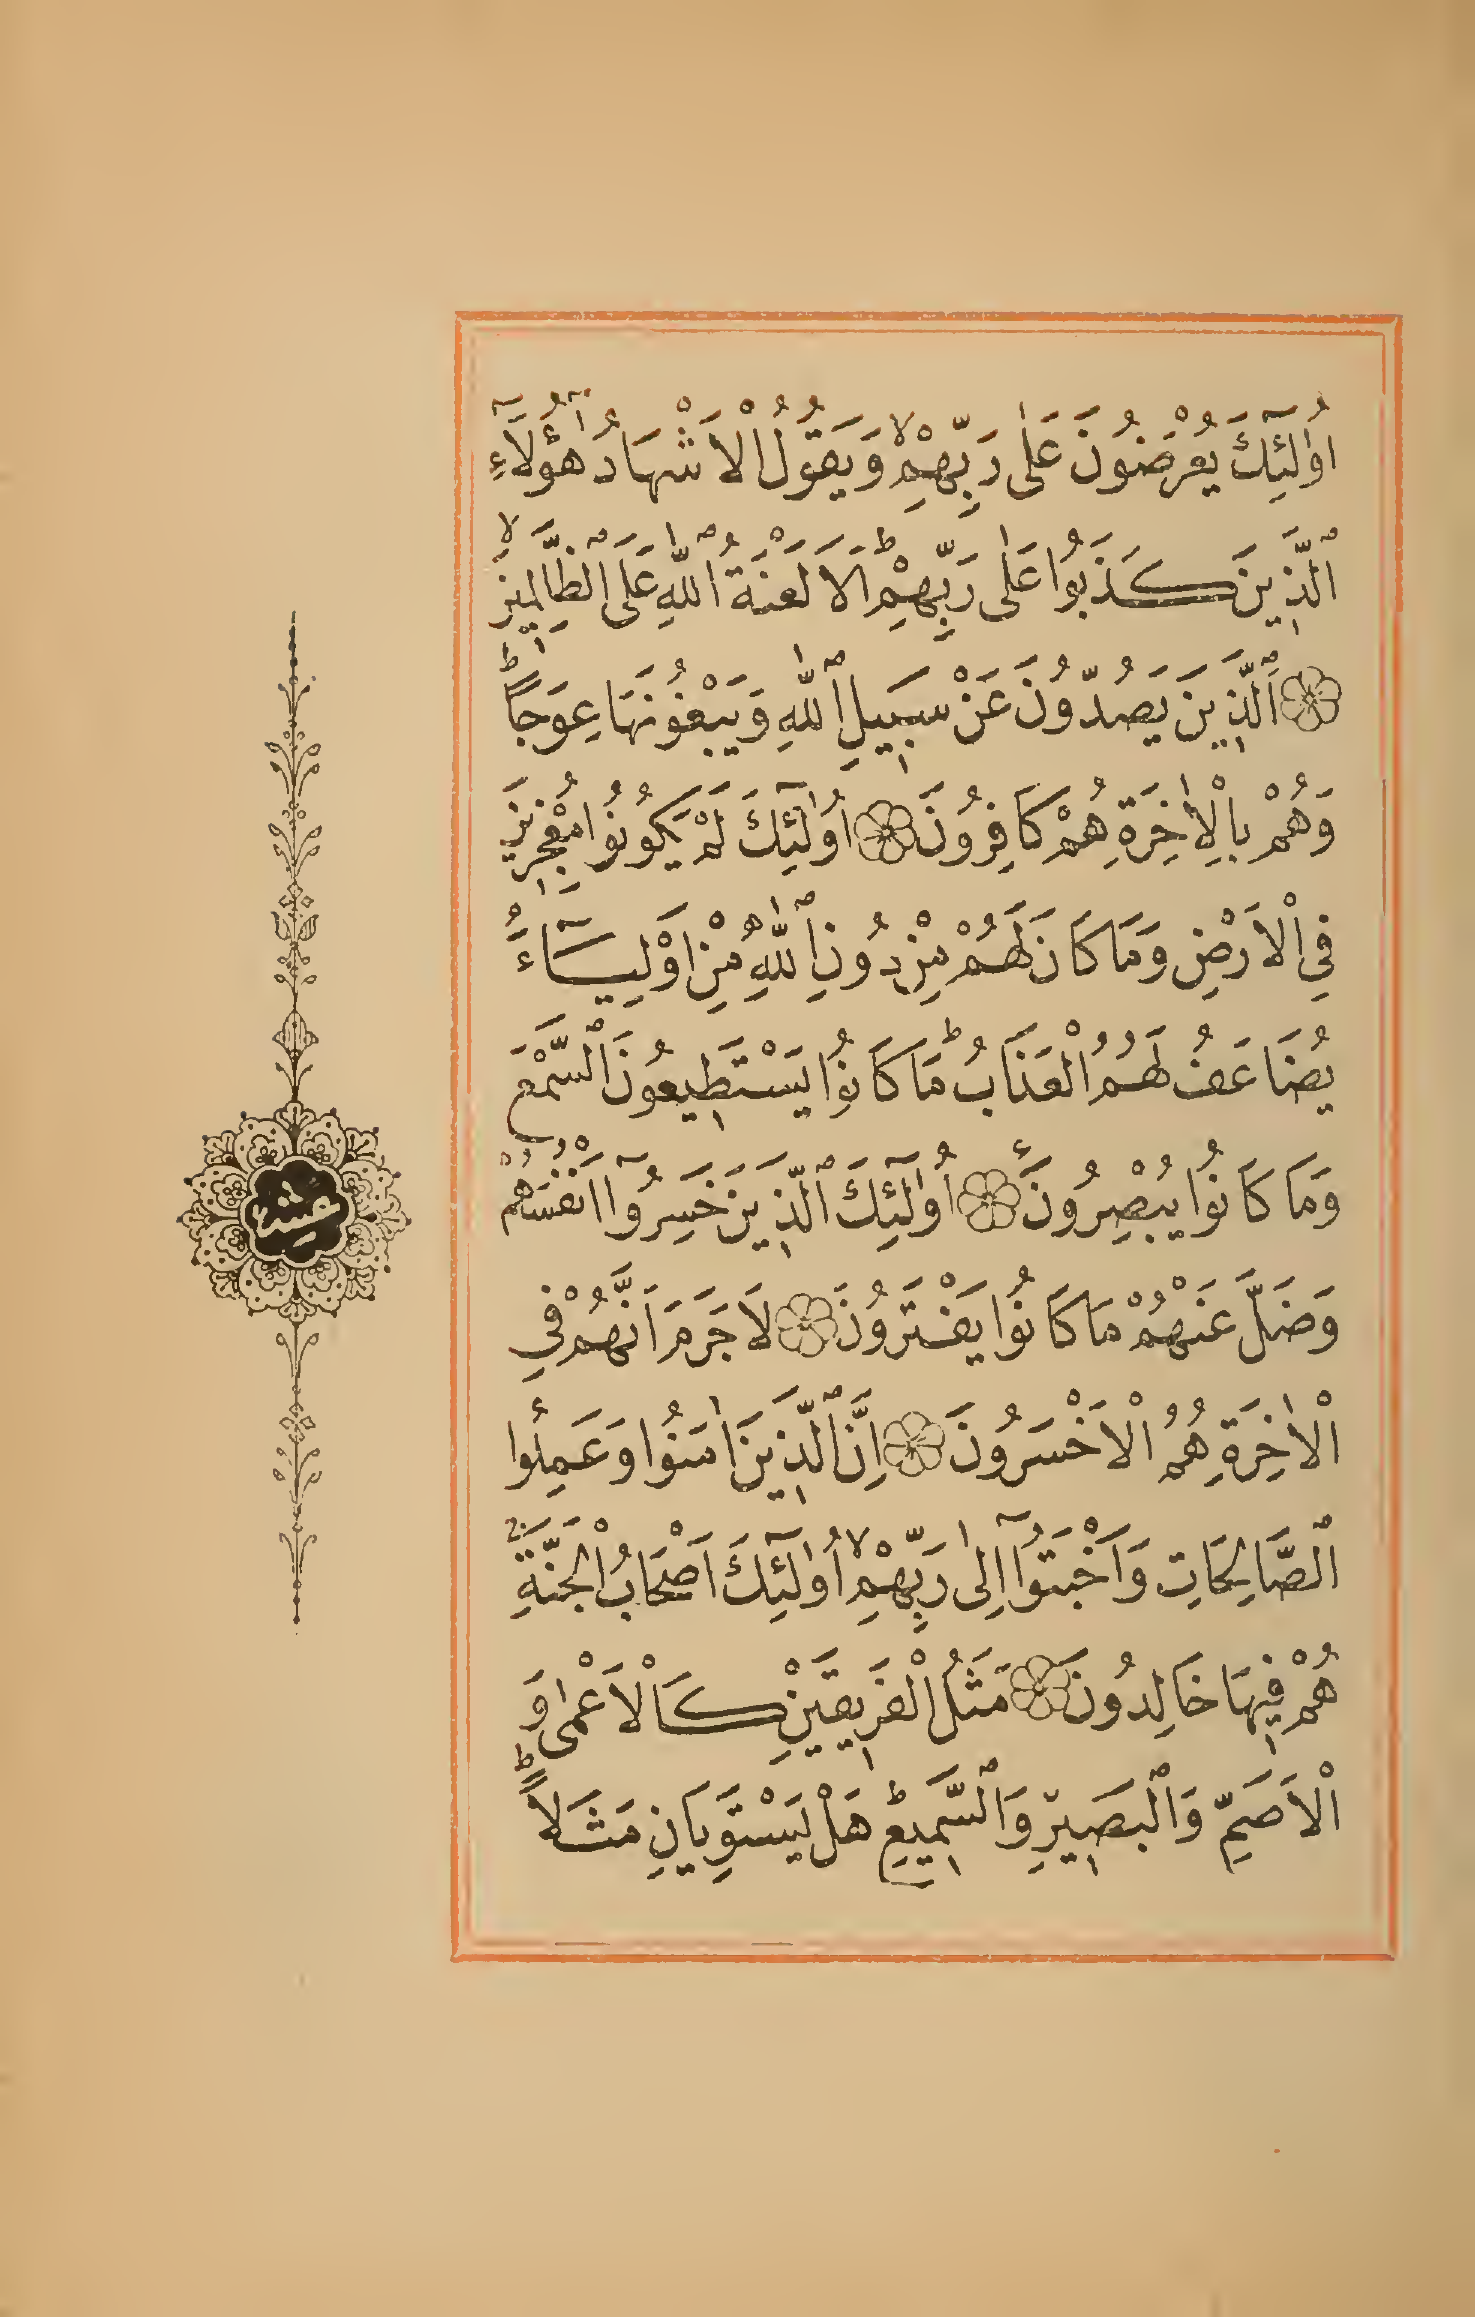 اُو۬لٰٓئِكَ يُعْرَضُونَ عَلٰى رَبِّهِمْۙ وَيَقُولُ الْاَشْهَادُ هٰٓؤُ۬لَٓاءِ
الَّذ۪ينَ كَذَبُوا عَلٰى رَبِّهِمْۜ اَلَا لَعْنَةُ اللّٰهِ عَلَى الظَّالِم۪ينَۙ
اَلَّذ۪ينَ يَصُدُّونَ عَنْ سَب۪يلِ اللّٰهِ وَيَبْغُونَهَا عِوَجاًۜ
وَهُمْ بِالْاٰخِرَةِ هُمْ كَافِرُونَ اُو۬لٰٓئِكَ لَمْ يَكُونُوا مُعْجِز۪ينَ
فِي الْاَرْضِ وَمَا كَانَ لَهُمْ مِنْ دُونِ اللّٰهِ مِنْ اَوْلِيَٓاءَۢ
يُضَاعَفُ لَهُمُ الْعَذَابُۜ مَا كَانُوا يَسْتَط۪يعُونَ السَّمْعَ
وَمَا كَانُوا يُبْصِرُونَ اُو۬لٰٓئِكَ الَّذ۪ينَ خَسِرُٓوا اَنْفُسَهُمْ
وَضَلَّ عَنْهُمْ مَا كَانُوا يَفْتَرُونَ لَا جَرَمَ اَنَّهُمْ فِي
الْاٰخِرَةِ هُمُ الْاَخْسَرُونَ اِنَّ الَّذ۪ينَ اٰمَنُوا وَعَمِلُوا
الصَّالِحَاتِ وَاَخْبَتُٓوا اِلٰى رَبِّهِمْۙ اُو۬لٰٓئِكَ اَصْحَابُ الْجَنَّةِۚ
هُمْ ف۪يهَا خَالِدُونَ مَثَلُ الْفَر۪يقَيْنِ كَالْاَعْمٰى وَ
الْاَصَمِّ وَالْبَص۪يرِ وَالسَّم۪يعِۜ هَلْ يَسْتَوِيَانِ مَثَلاًۜ